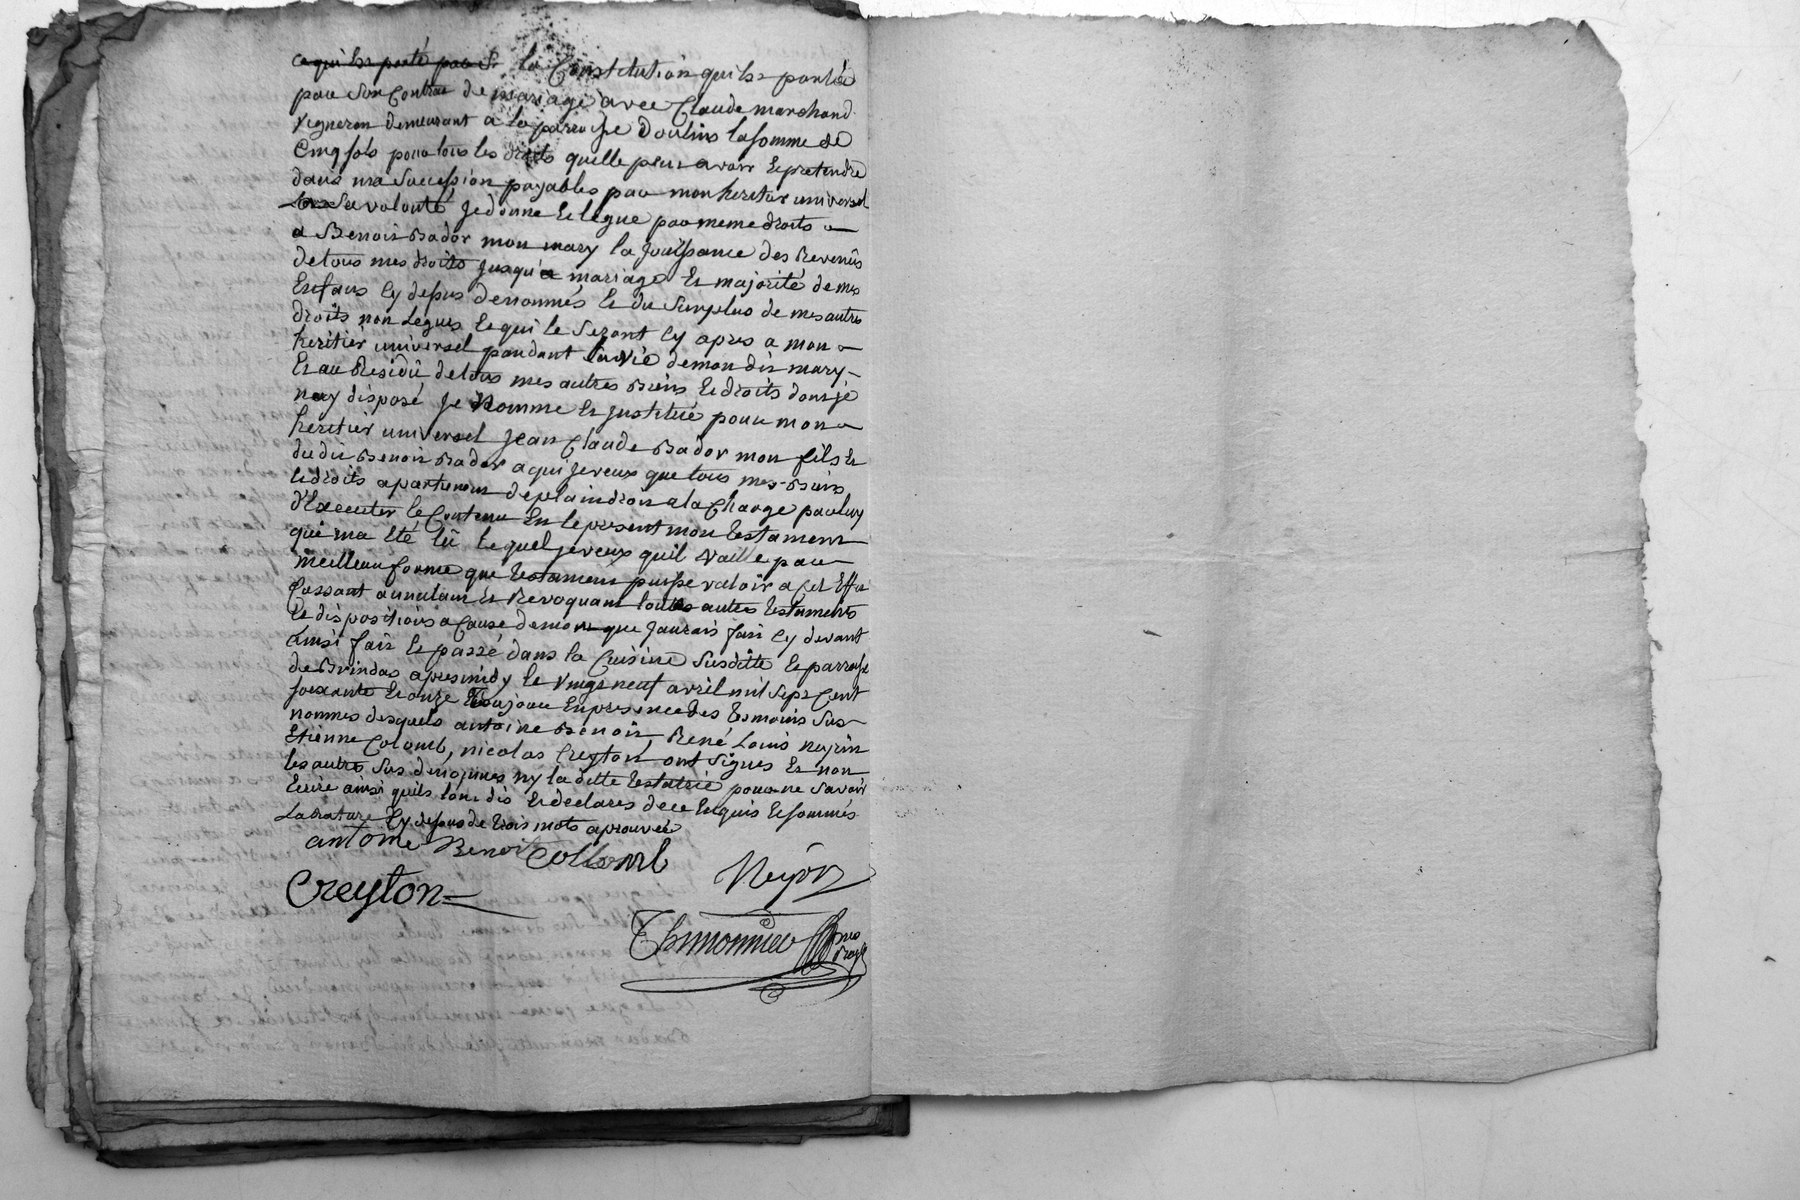 ce qui est porté par sr la Constitution qui est portée
par son Contrat de mariage avec Claude marchand
vigneron demeurant a la parroisse doulins la somme de
Cinq sols pour tous les droits quelle peut avoir et pretendre
dans ma succession payables par mon heritier universel
a sa volonté, je donne et legue par meme droits
a Benoit Bador mon mary la Jouissance des Revenûs
de tous mes droits jusqu'a mariage et majorité de mes
Enfans cy dessus denommés et du surplus de mes autres
droits non Legues et qui le seront cy apres a mon
heritier universel pandant la vie de mon dit mary
Et au Residû de tous mes autres Biens et droits dont je
nay disposé je Nomme et institue pour mon
heritier universel jean Claude Bador mon fils et
du dit Benoit Bador a qui je veux que tous mes Biens
et droits apartienent de plain droit a la charge par luy
d'Executer le Contenu En le present mon testament
qui ma été lû lequel je veux quil vaille par
meilleur forme que testament puisse valoir a cet Effet
Cassant annulant et Revoquant toutes autres testaments
Et dispositions a Cause de mort que jaurais fait cy devant
Ainsi fait et passé dans la Cuisine susditte et parroisse
de Brindas apres midy le vingt neuf avril mil sept Cent
soixante et onze En presence des temoins sus
nommes desquels antoine Benoit, René Louis neyrin
Etienne Colomb, nicolas Creyton ont signes et non
les autres sus denommes ny la ditte testatrice pour ne savoir
Ecrire ainsi quils lont dit et declares de ce Enquis et sommés
La rature Cy dessus de trois mots aprouvée
antome Benoit Collomb
Creyton
Thimonnier